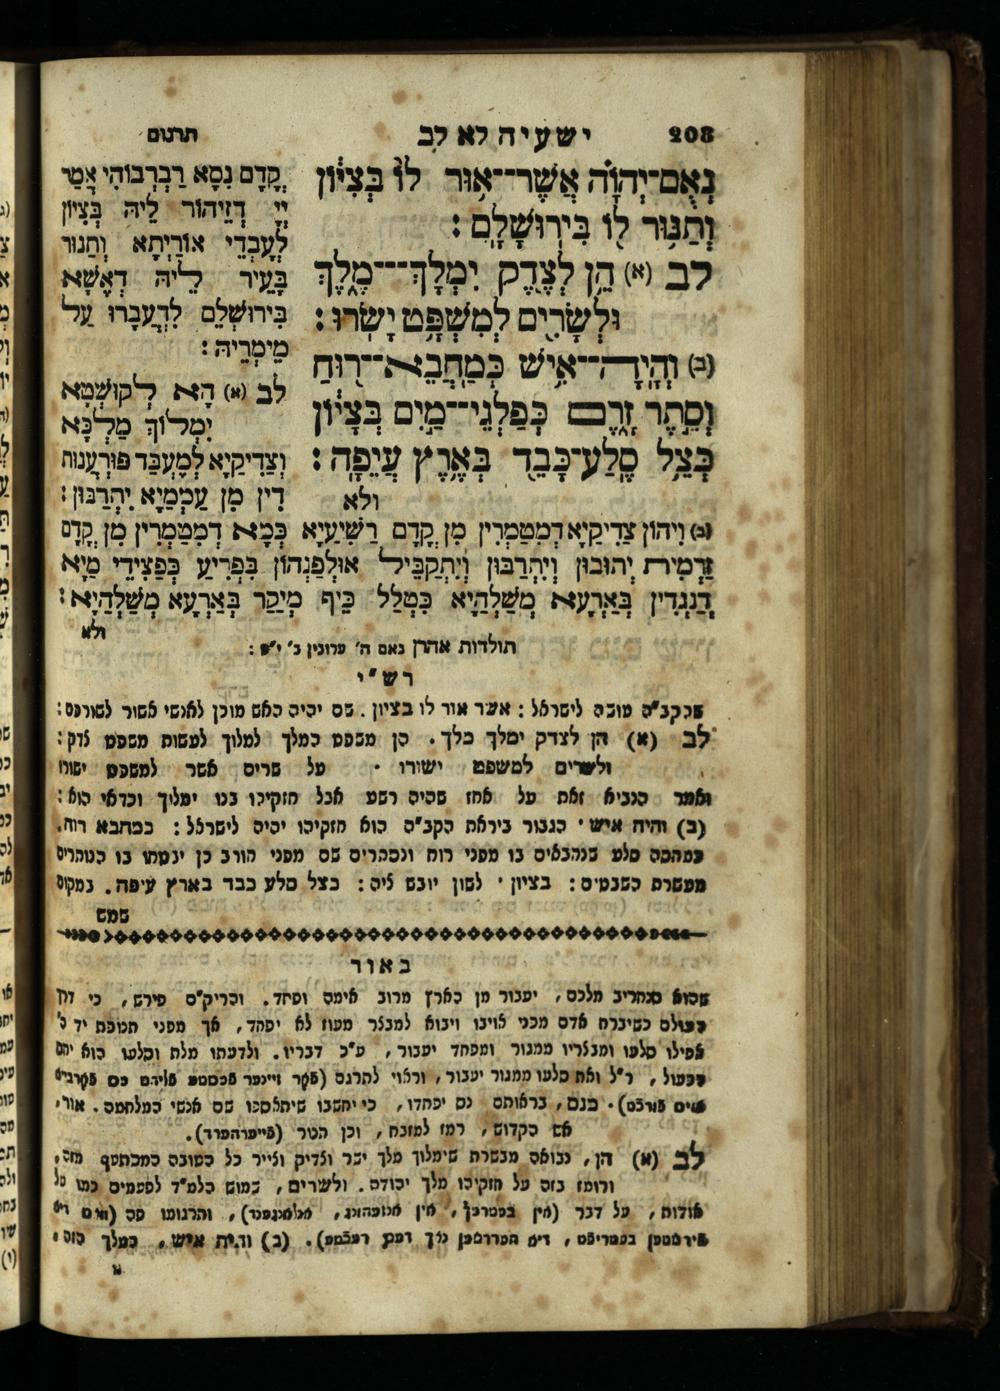 208 ישעיה לא לב תרגום
נְאֻם־יְהוָֹה אֲשֶׁר־אוּר לוֹ בְּצִיּוֹן
וְתַנּוּר לוֹ בִּירוּשָׁלָ͏ִם :
לב (א) הֵן לְצֶדֶק יִמְלָךְ־מֶלֶךְ
וּלְשָׂרִים לְמִשְׁפָּט יָשֹׂרוּ :
(ב) וְהָיָה־אִישׁ כְּמַחֲבֵא־רוּחַ
וְסֵתֶר זָרֶם כְּפַלְגֵי־מַיִם בְּצָיוֹן
כְּצֵל סֶלַע־כָּבֵד בְּאֶרֶץ עֲיֵפָה :
ולא
קֳדָם נִסָא רַבְרְבוֹהִי אֲמַר
יְיָ דְזֵיהוֹר לֵיהּ בְּצִיוֹן
לְעָבְדֵי אוֹרַיְתָא וְתַנוּר
בָּעֵיר לֵיהּ דְאֶשָׁא
בִּירוּשְׁלֵם לִדְעֲבָרוּ עַל
מֵימְרֵיהּ :
לב (א) הָא לְקוּשְׁטָא
יִמְלוֹךְ מַלְכָּא
וְצַדִיקַיָא לְמֶעְבַּד פּוּרְעֲנוּת
דִין מִן עַמְמַיָא יִתְרַבּוּן :
(ב) וִיהוֹן צַדִיקַיָא דְמִטַמְרִין מִן קֳדָם רַשִׁיעַיָא כְּמָא דְמִטַמְרִין מִן קֳדָם
זַרְמִית יְתוּבוּן וְיִתְרַבּוּן וְיִתְקַבֵּיל אוּלְפַנְהוֹן בִּפְרִיעַ כְּפַצִידֵי מַיָא
דְנַגְדִין בְּאַרְעָא מְשַׁלְהַיָא כִּטְלַל כֵּיף מְיַקַר בְּאַרְעָא מְשַׁלְהַיָא :
ולא
תולדות אהרן נאם ה׳ ערובין כ׳ י״ט :
רש״י
שהקב״ה טובה לישראל : אשר אור לו בציון . שם יהיה האש מוכן לאנשי אשור לשורפם :
לב (א) הן לצדק ימלך מלך . הן משפט המלך למלוך לעשות משפט צדק :
ולשרים למשפט ישורו . על שרים אשר למשפט ישורו
ואמר הנביא זאת על אחז שהיה רשע אבל חזקיהו בנו ימליך וכדאי הוא :
(ב) והיה איש . הגבור ביראת הקב״ה הוא חזקיהו יהיה לישראל : כמחבא רוח.
כמחבה סלע שנחבאים בו מפני רוח ונסתרים שם מפני זורב כן ינשתו בו הנותרים
מעשרת השבטים : בציון . לשון יובש ציה : כצל סלע כבד בארץ עיפה . במקום
שמש
באור
שהוא סנחריב מלכם, יעבור מן הארץ מרוב אימה ופחד. והריק״ם פירש, כי דרך
העולם כשיברח אדם מפני אויבו ויבוא למבצר מעוז לא יפחד, אך מפני תנופת יד ה׳
אפילו סלעו ומבצריו ממגור ומפחד יעבור, ע״כ דבריו. ולדעתי מלת וסלעו הוא יחס
הפעול, ר״ל ואת סלעו ממגור יעבור, וראוי לתרגם
נסם, בראותם נס יפחדו, כי יחשבו שיתאספו שם אנשי המלחמה. אור,
אש הקדוש, רמז למזבח, וכן תנור (פייערהערד).
לב (א) הן, נבואה מבשרת שימלוך מלך ישר וצדיק וצייר כל הטובה המסתעף מזה,
ורומז בזה על חזקיהו מלך יהודה. ולשרים, שמוש הלמ״ד לפעמים כמו על
אודות, על דבר (אין בטטרעף, אין אנזעהונג, אנלאנגענד), ותרגומו פה
(ב) והיה איש, המלך הזה,